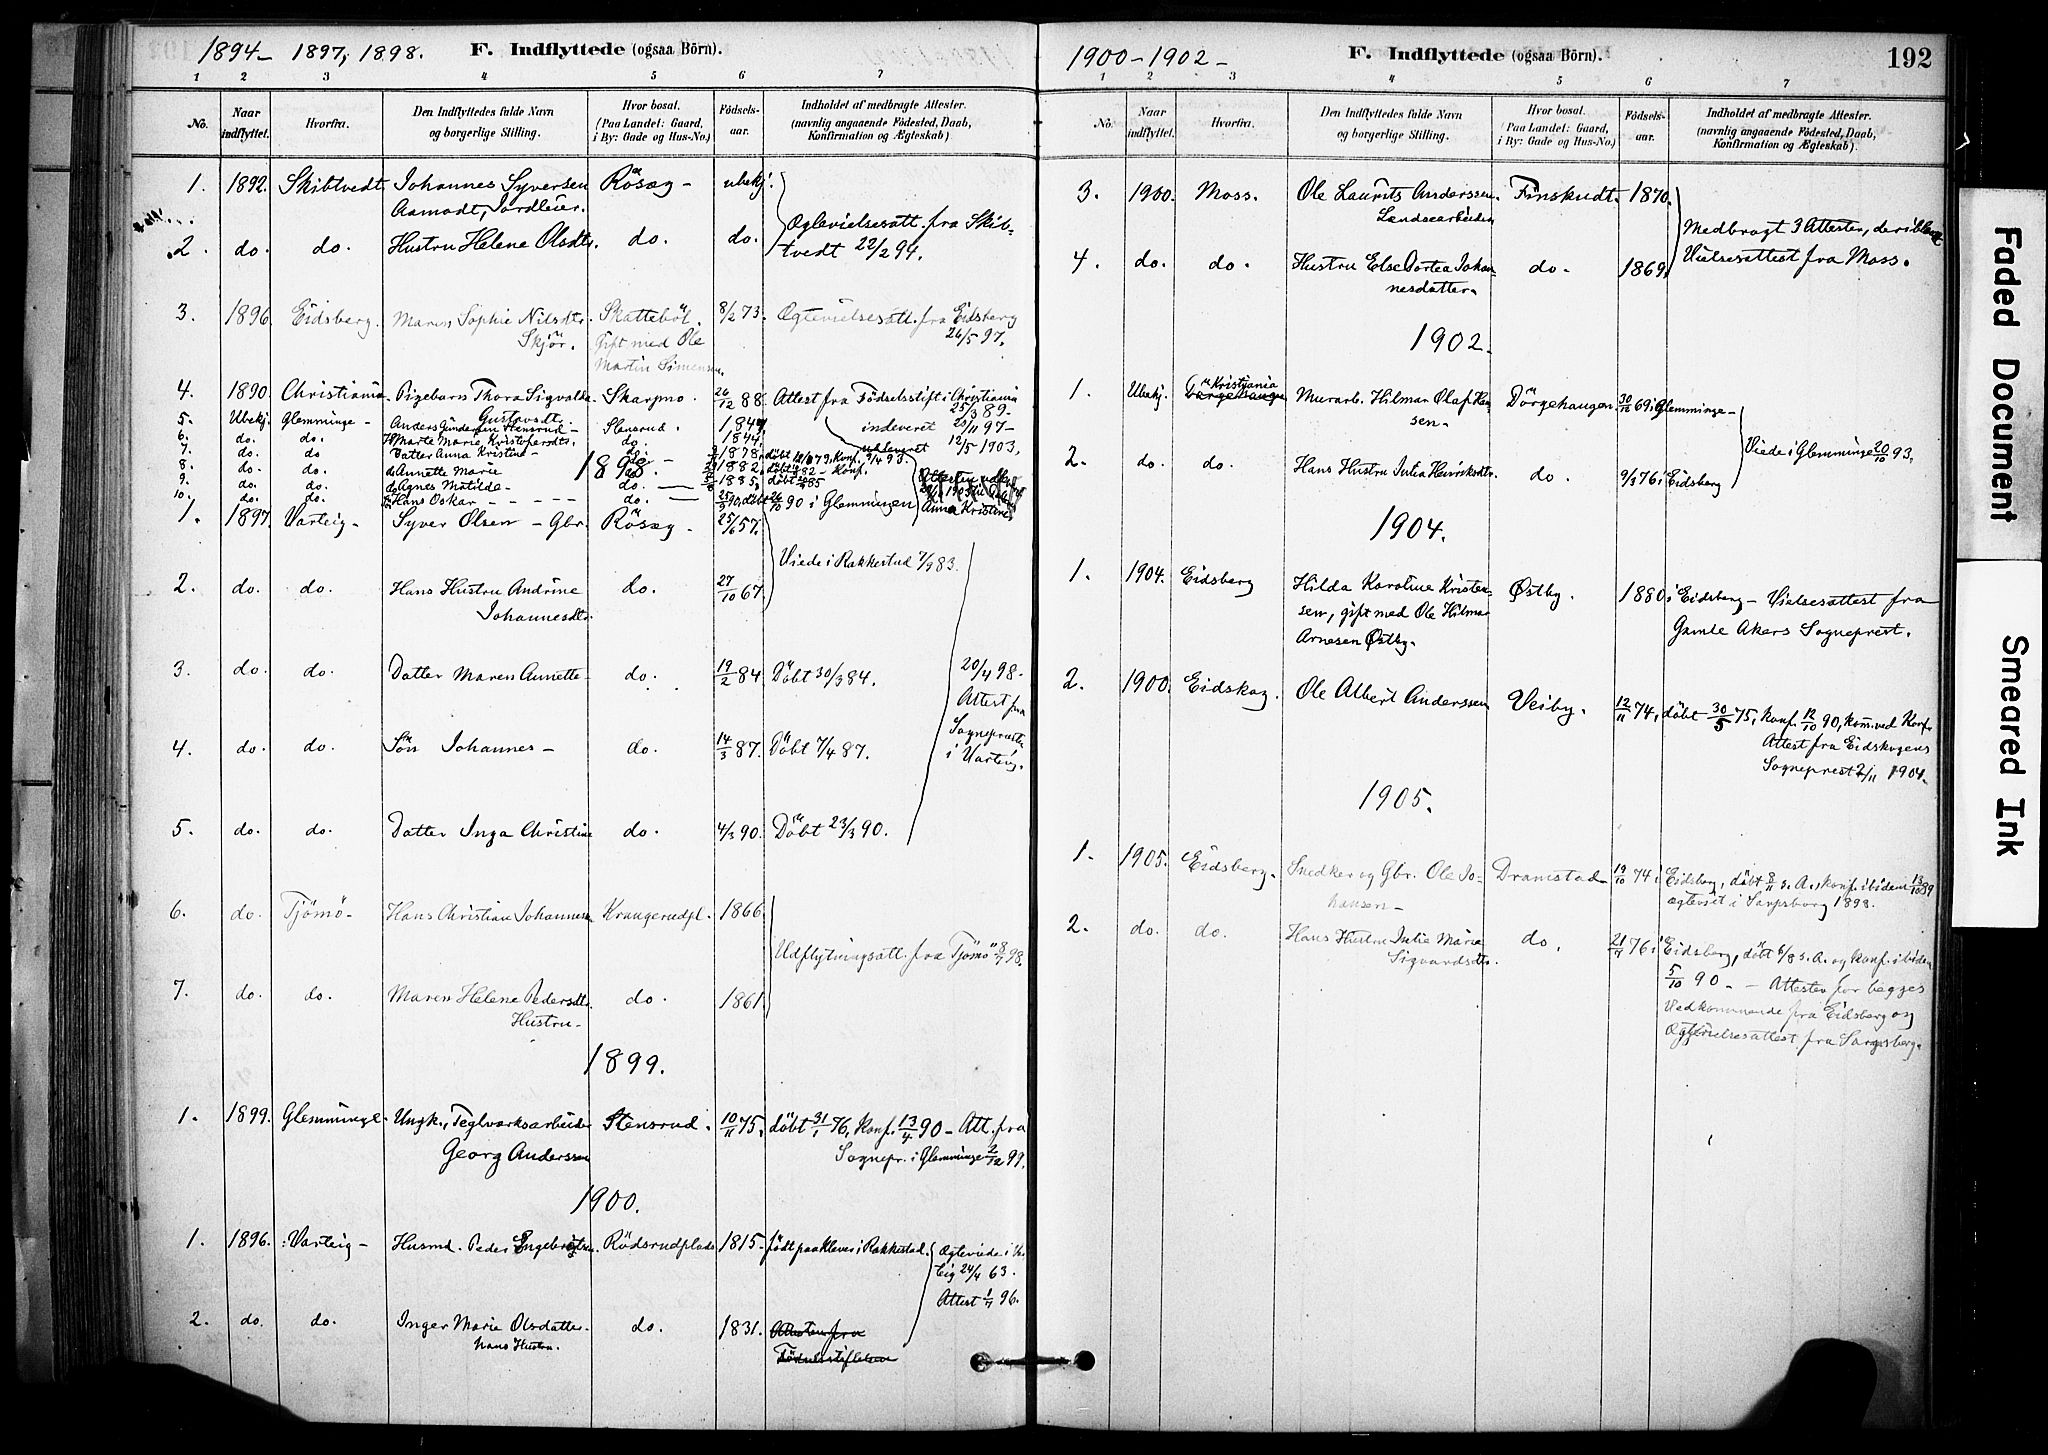 1894- 1897, 1898. F. Indflyttede (ogsaa Börn).
1 2 3 4 5 6 7
No. Naar indflyttet. Hvorfra. Den Indflyttedes fulde Navn og borgerlige Stilling. Hvor bosat. (Paa Landet: Gaard, i By: Gade og Hus-No.) Födsels-aar. Indholdet af medbragte Attester. (navnlig angaaende Födested, Daab, Konfirmation og Ægteskab)
1. 1892. Skibtvedt Johannes Syversen Rösæg - ubekj.
Aamodt, Jordleier.
2. do. do. Hustru Helene Olsdtr. do. do. Ægtevielsesatt. fra Skib-
tvedt 22/2 94.
3. 1896. Eidsberg. Maren Sophie Nilsdtr. Skatteböl. 8/2 73. Ægtevielsesatt. fra Eidsberg
Skjör. Gift med Ole 26/5 97.
Martin Simensen
4. 1890. Christiania Pigebarn Thora Sigvalda Skarpno. 26/12 88. Attest fra Födselsstift i Christiania
Gustavsdt. 25/3 89-
5. Ubekj. Glemminge - Anders Gundersen Stensrud - Stensrud. 1847. indeveret 20/11 97-
6. do. do. Marte Marie Kristofersdtr. do. 1844. udleveret 12/5 1903.
7. do do. Datter Anna Kristine - do. 1878. döbt 79, konf. 9/4 93.
8. do. do. do Annette Marie 1898. 1882. döbt 82 - konf.
9. do. do. do Agnes Matilde - do. 1885. döbt 85
10. do. do. Hans Oskar - - - - do. 25/9 90. döbt 26/10 90 i Glemmingen
Attesten udlev
Anna Kristine
1. 1897. Varteig - Syver Olsen - Gbr. Rösæg - 25/6 57.
Viede i Rakkestad 7/9 83.
2. do. do. Hans Hustru Andrine do. 27/10 67.
Johannesdtr.
3. do. do. Datter Maren Annette - do. 19/2 84. Döbt 30/3 84. 20/4 98.
Attest fra
4. do. do. Sön Johannes - do. 14/3 87. Döbt 7/4 87. Sognepresten
i Varteig.
5. do. do. Datter Inga Christine do. 4/3 90. Döbt 23/3 90.
6. do. Tjömö - Hans Christian Johannesen Krangerudpl. 1866.
Udflytningsatt. fra Tjömö 8/7 98.
7. do. do. Maren Helene Pedersdt. do. 1861.
Hustru -
1899.
1. 1899. Glemminge - Ungk., Teglværksarbeider Stensrud. 10/11 75. döbt 31/1 76, Konf. 13/4 90 - Att. fra
Georg Anderssen Sognepr. i Glemminge 2/12 99.
1900.
1. 1896. Varteig - Husmd. Peder Engebretsen. Rödsrudplads 1815. födt paa Kleven i Rakkestad. Ægteviede i Var-
teig 24/4 63.
Attest 1/7 96.
2. do. do. Inger Marie Olsdatter. do. 1831. Attesten fra
hans Hustru. Födselsstiftelsen
1900-1902- F. Indflyttede (ogsaa Börn). 192
1 2 3 4 5 6 7
No. Naar indflyttet. Hvorfra. Den Indflyttedes fulde Navn og borgerlige Stilling. Hvor bosat. (Paa Landet: Gaard, i By: Gade og Hus-No.) Födsels-aar. Indholdet af medbragte Attester. (navnlig angaaende Födested, Daab, Konfirmation og Ægteskab).
3. 1900. Moss. Ole Laurits Anderssen. Finskudt. 1870.
Landsearbeider Medbragt 3 Attester, deriblandt
4. do. do. Hustru Else Dortea Johan- do. 1869. Vielsesattest fra Moss.
nesdatter.
1902.
1. Ubekj. Kristiania Murarb. Hilmar Olaf Han- Dörgehaugen 30/10 69 i Glemminge -
sen -
Viede i Glemminge 20/10 93.
2. do. do. Hans Hustru Julia Henriksdtr. do. 9/3 76 i Eidsberg
1904.
1. 1904. Eidsberg Hilda Karoline Kristen- Østby. 1880 i Eidsberg - Vielsesattest fra
sen, gift med Ole Hilmar Gamle Akers Sogneprest.
Arnesen Østby.
2. 1900. Eidskog. Ole Albert Anderssen Veiby. 12/11 74, döbt 30/5 75, konf. 12/10 90, kom. ved Konf.
Attest fra Eidskogens
Sogneprest 2/11 1904.
1905.
1. 1905. Eidsberg. Snedker og Gbr. Ole Jo- Dramstad - 19/10 74 i Eidsberg, döbt 8/11 s. A., konf. ibidem 13/10 89
hansen - ægteviet i Sarpsborg 1898.
2. do. do. Hans Hustru Julie Marie do. 21/7 76 i Eidsberg, döbt 6/8 s. A. og konf. ibidem
Sigvardsdtr. 5/10 90 - - Attester for begges
Vedkommende fra Eidsberg og
Ægtevielsesattest fra Sarpsborg.
Faded Document
Smeared Ink